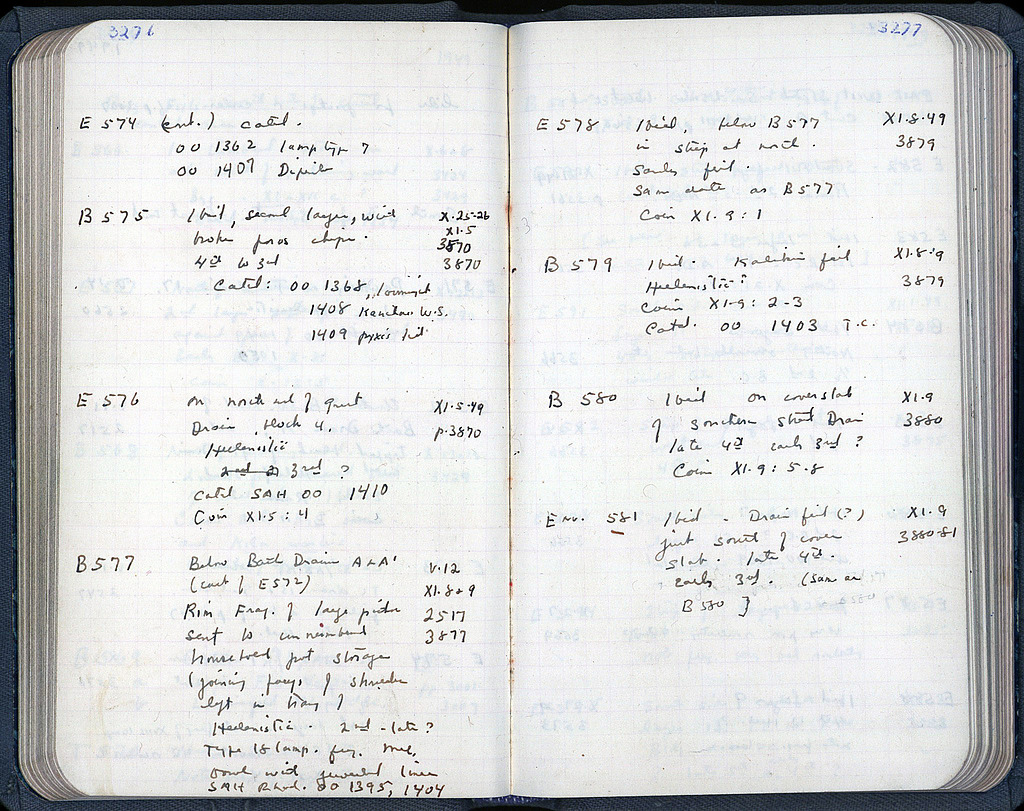 3276
E 574 (cont.) Catal.
OO 1362 lamp type 7
OO 1407
B 575 Ibid, second layer, with X.25-26
broken poros chips. XI.5
3870
4th to 3rd 3870
Catal: OO 1368,
1408 W.S.
1409 pyxis lid
E 576 on north end of great XI.5.49
Drain block 4. p.3870
Hellenistic
2nd 3rd ?
Catal SAH OO 1410
Coin XI.5 : 4
B 577 Below Bath Drain A & A' V.12
(cont of E572) XI.8 & 9
Rim Frag. of large pithos 2517
sent to uninventoried 3877
household pot storage
(joining frags. of shoulder
left in tray)
Hellenistic 2nd - late ?
Type 18 lamp. frg.
bowl with jeweled lines
SAH OO 1395, 1404
3277
E 578 Ibid, below B 577 XI.8.49
in strip at north. 3879
Sandy fill.
Same date as B 577
Coin XI.9 : 1
B 579 Ibid. fill XI.8.9
Hellenistic ? 3879
Coin XI.9 : 2-3
Catal. OO 1403 T.C.
B 580 Ibid on cover slab XI.9
of southern street Drain 3880
late 4th early 3rd ?
Coin XI.9 : 5.8
Env. 581 Ibid - Drain fill (?) XI.9
just south of cover 3880-81
slab. late 4th.
early 3rd. (same as
B 580 )
B 580